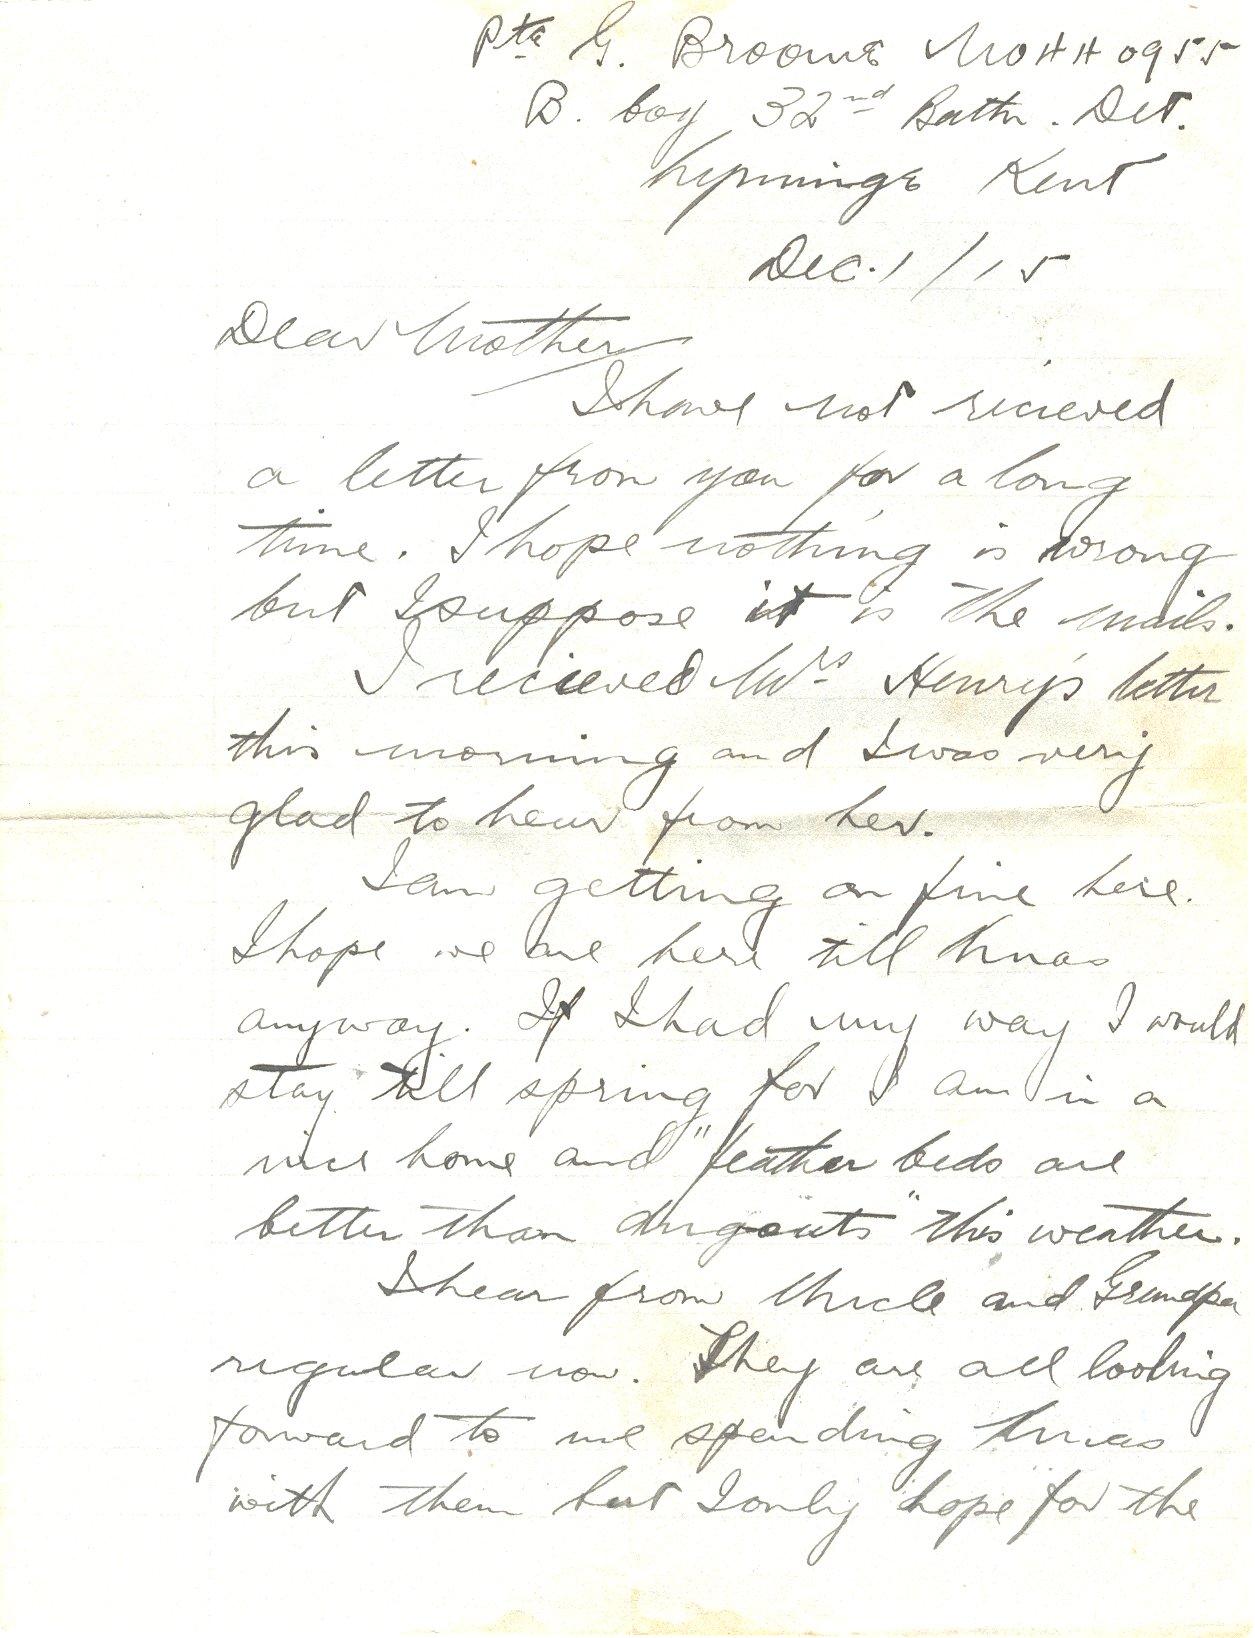 Pte G. Broome No 440955
B. Coy 32nd Battn. Det.
Lyminge Kent
Dec. 1/15
Dear Mother
I have not recieved
a letter from you for a long
time. I hope nothing is wrong
but I suppose it is the mails.
I recieved Mrs Henry's letter
this morning and I was very
glad to hear from her.
I am getting on fine here.
I hope we are here till Xmas
anyway. If I had my way I would
stay till spring for I am in a
nice home and "feather beds are
better than dugouts" this weather.
I hear from Uncle and Grandpa
regular now. They are all looking
forward to me spending Xmas
with them but I only hope for the